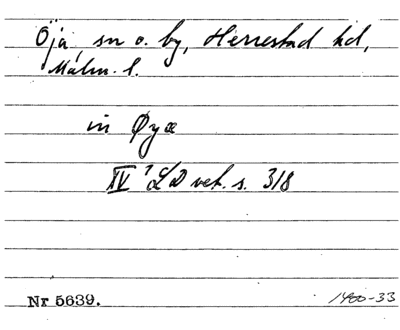 Öja, sn o. by, Herrestad hd,
Malm. l.
in Øyæ
IV 1 LD vet. s. 318
Nr 5639.
1400-33